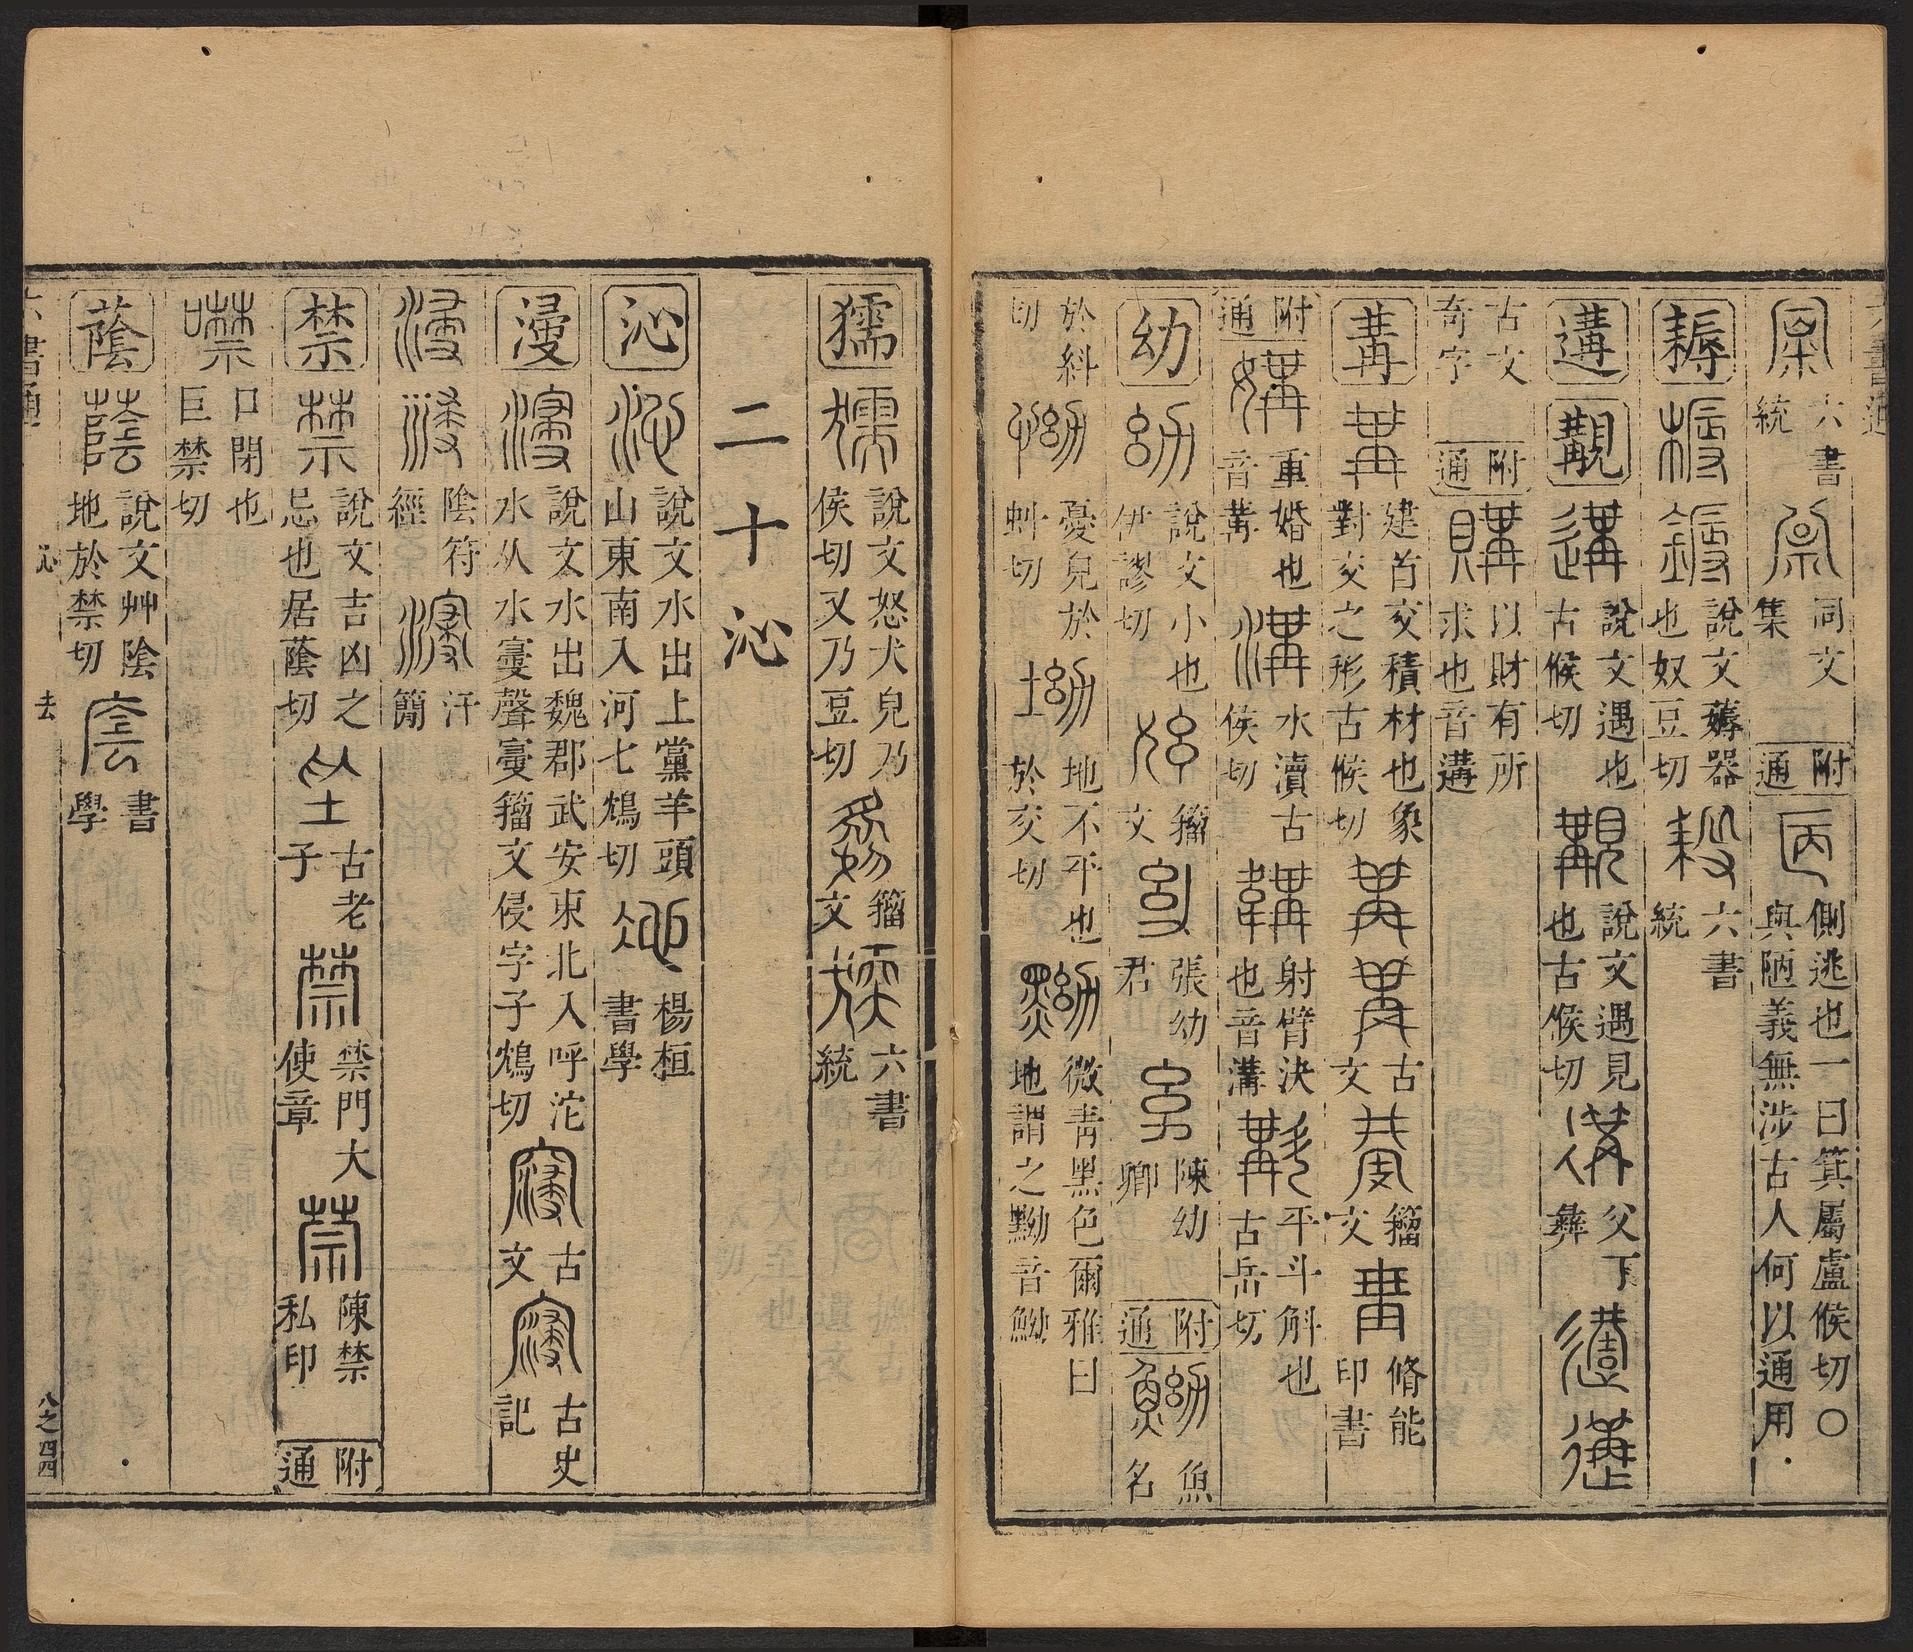 六書統 同文集 附通 側逃也一曰箕屬盧候切〇與陋義無涉古人何以通用
耨 說文薅器也奴豆切 六書統
遘 覯 說文遇也古候切 說文遇見也古候切 父丁彝
古文奇字 附通 購 以財有所求也音遘
冓 建首交積材也象對交之形古候切 古文 籀文 脩能印書
附通 媾 重婚也音冓 溝 水瀆古侯切 韝 射臂決也音溝 斠 平斗斛也古岳切
幼 幼 說文小也伊謬切 籀文 張幼君 陳幼卿 附通 魚名
於糾切 怮 憂皃於虯切 坳 地不平也於交切 黝 微青黑色爾雅曰地謂之黝音
獳 獳 說文怒犬皃乃侯切又乃豆切 籀文 六書統
二十沁
沁 沁 說文水出上黨羊頭山東南入河七鴆切 楊桓書學
濅 說文水出魏郡武安東北入呼沱水从水㝲聲㝲籀文侵字子鴆切 古文 古史記
陰符經 汗簡
禁 禁 說文吉凶之忌也居蔭切 古老子 禁門大使章 陳禁私印 附通
噤 口閉也巨禁切
蔭 蔭 說文艸陰地於禁切 書學
六書通 沁 去 八之四四